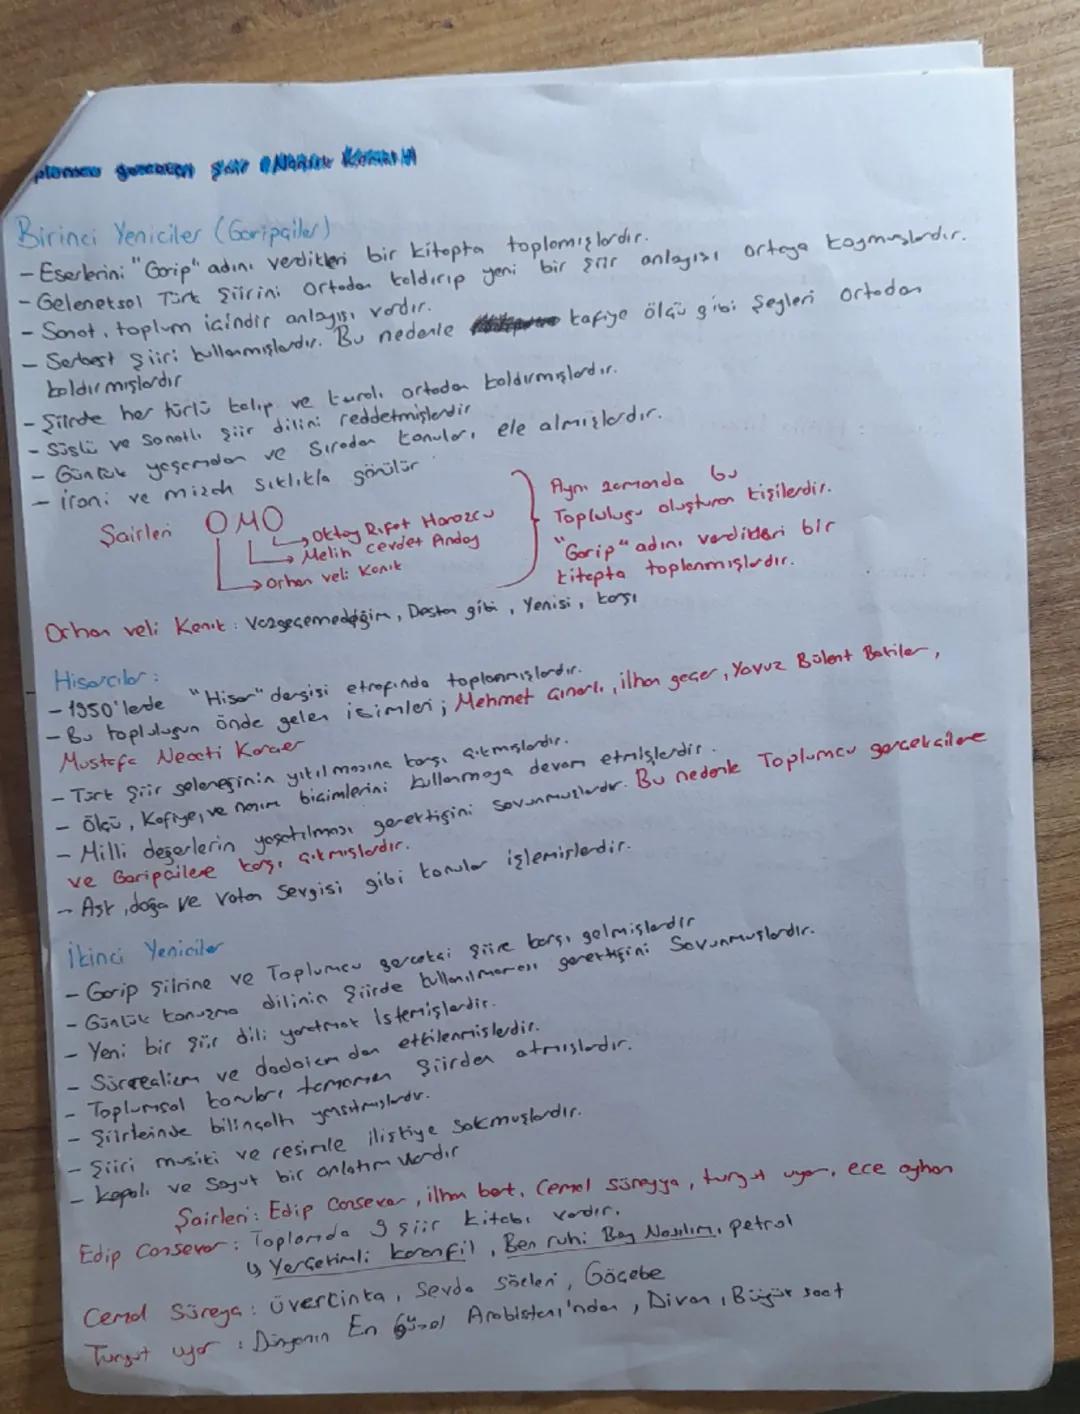 Birinci Yeniciler (Garipçiler)
- Eserlerini "Garip" adını verdikleri bir kitapta toplamışlardır.
- Geleneksel Türk Şiirini ortadan kaldırıp yeni bir şiir anlayışı ortaya koymuşlardır.
- Sanat, toplum içindir anlayışı vardır.
- Serbest şiiri kullanmışlardır. Bu nedenle kafiye ölçü gibi şeyleri ortadan
kaldırmışlardır
- Şiirde her türlü kalıp ve kuralı ortadan kaldırmışlardır.
- Süslü ve sanatlı şiir dilini reddetmişlerdir
- Günlük yaşamdan ve sıradan konuları ele almışlardır.
- ironi ve mizah sıklıkla görülür
Şairleri OMO
Oktay Rıfat Horozcu
Melih Cevdet Anday
Orhan veli Kanık
Aynı zamanda bu
Topluluğu oluşturan kişilerdir.
"Garip" adını verdikleri bir
kitapta toplanmışlardır.
Orhan veli Kanık: Vazgeçemediğim, Destan gibi, Yenisi, karşı
Hisarcılar:
- 1950'lerde "Hisar" dergisi etrafında toplanmışlardır.
- Bu topluluğun önde gelen isimleri; Mehmet Çınarlı, ilhan geçer, Yavuz Bülent Bakiler,
Mustafa Necati Karaer
- Türk Şiir geleneğinin yıkılmasına karşı çıkmışlardır.
- Ölçü, Kafiye, ve nazım biçimlerini kullanmaya devam etmişlerdir.
- Milli değerlerin yaşatılması gerektiğini savunmuşlardır. Bu nedenle Toplumcu gerçekçilere
ve Garipçilere karşı çıkmışlardır.
- Aşk, doğa ve vatan sevgisi gibi konular işlemişlerdir.
İkinci Yeniciler
- Garip şiirine ve Toplumcu gerçekçi şiire karşı gelmişlerdir
- Günlük konuşma dilinin şiirde kullanılmaması gerektiğini Savunmuşlardır.
- Yeni bir şiir dili yaratmak istemişlerdir.
- Sürrealizm ve dadaizm dan etkilenmişlerdir.
- Toplumsal konuları tamamen şiirden atmışlardır.
- Şiirlerinde bilinçaltı yansıtmışlardır.
- Şiiri musiki ve resimle ilişkiye sokmuşlardır.
- kapalı ve Soyut bir anlatım vardır
Şairleri: Edip Cansever, ilhan berk, Cemal Süreyya, turgut uyar, ece ayhan
Edip Cansever: Toplamda 9 şiir kitabı vardır.
↳ Yerçekimli karanfil, Ben ruhi Bey Nasılım, petrol
Cemal Süreya: üvercinka, Sevda Sözleri, Göçebe
Turgut uyar: Dünyanın En Güzel Arabistanı'ndan, Divan, Büyük saat